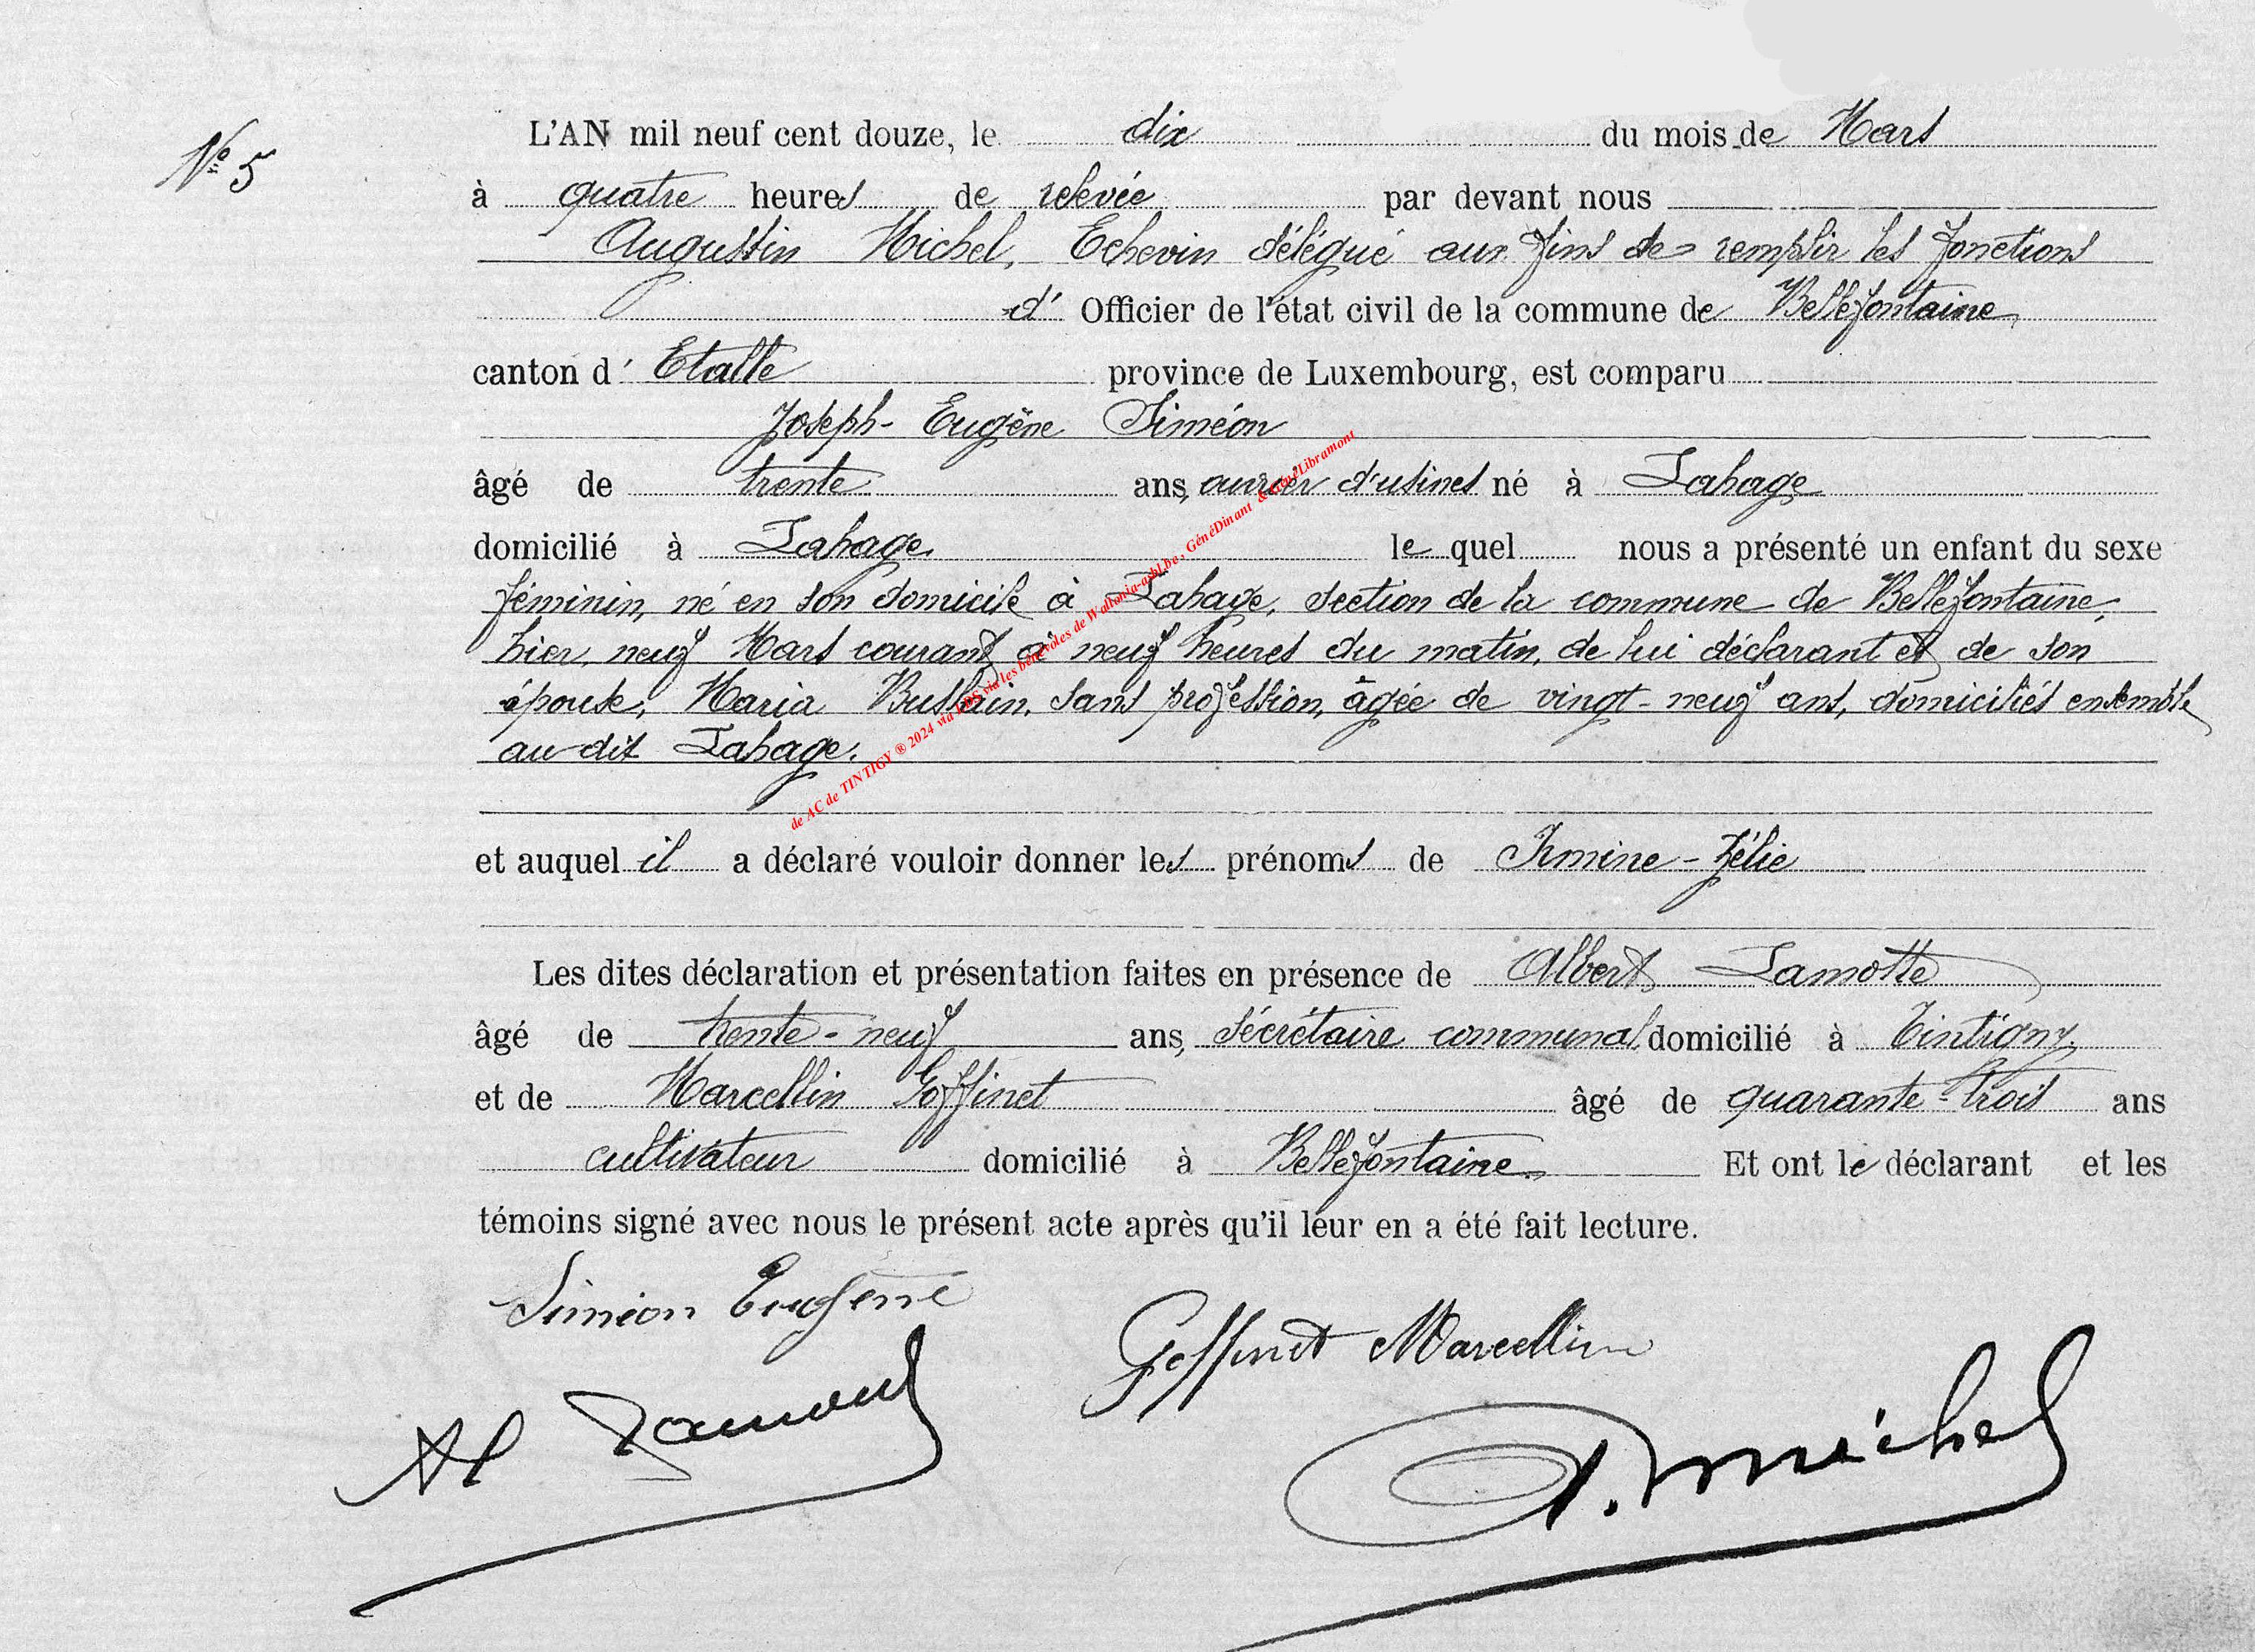 N° 5
L'AN mil neuf cent douze, le dix du mois de Mars
à quatre heures de relevée par devant nous
Augustin Michel, Echevin délégué aux fins de remplir les fonctions
d' Officier de l'état civil de la commune de Bellefontaine,
canton d' Etalle province de Luxembourg, est comparu
Joseph-Eugène Siméon
âgé de trente ans, ouvrier d'usines né à Lahage
domicilié à Lahage, le quel nous a présenté un enfant du sexe
féminin, né en son domicile à Lahage, section de la commune de Bellefontaine,
hier, neuf Mars courant, à neuf heures du matin, de lui déclarant et de son
épouse, Maria Busbain, sans profession, âgée de vingt-neuf ans, domiciliés ensemble
au dit Lahage.
de AC de TINTIGY ® 2024 via LDS via les bénévoles de Wallonia-asbl.be, GénéDinant & GénéLibramont
et auquel il a déclaré vouloir donner les prénoms de Irmine-Zélie
Les dites déclaration et présentation faites en présence de Albert Lamotte
âgé de trente-neuf ans, sécrétaire communal, domicilié à Tintigny,
et de Marcellin Goffinet âgé de quarante-trois ans
cultivateur domicilié à Bellefontaine. Et ont le déclarant et les
témoins signé avec nous le présent acte après qu'il leur en a été fait lecture.
Siméon Eugène
Goffinet Marcellin
A. Michel